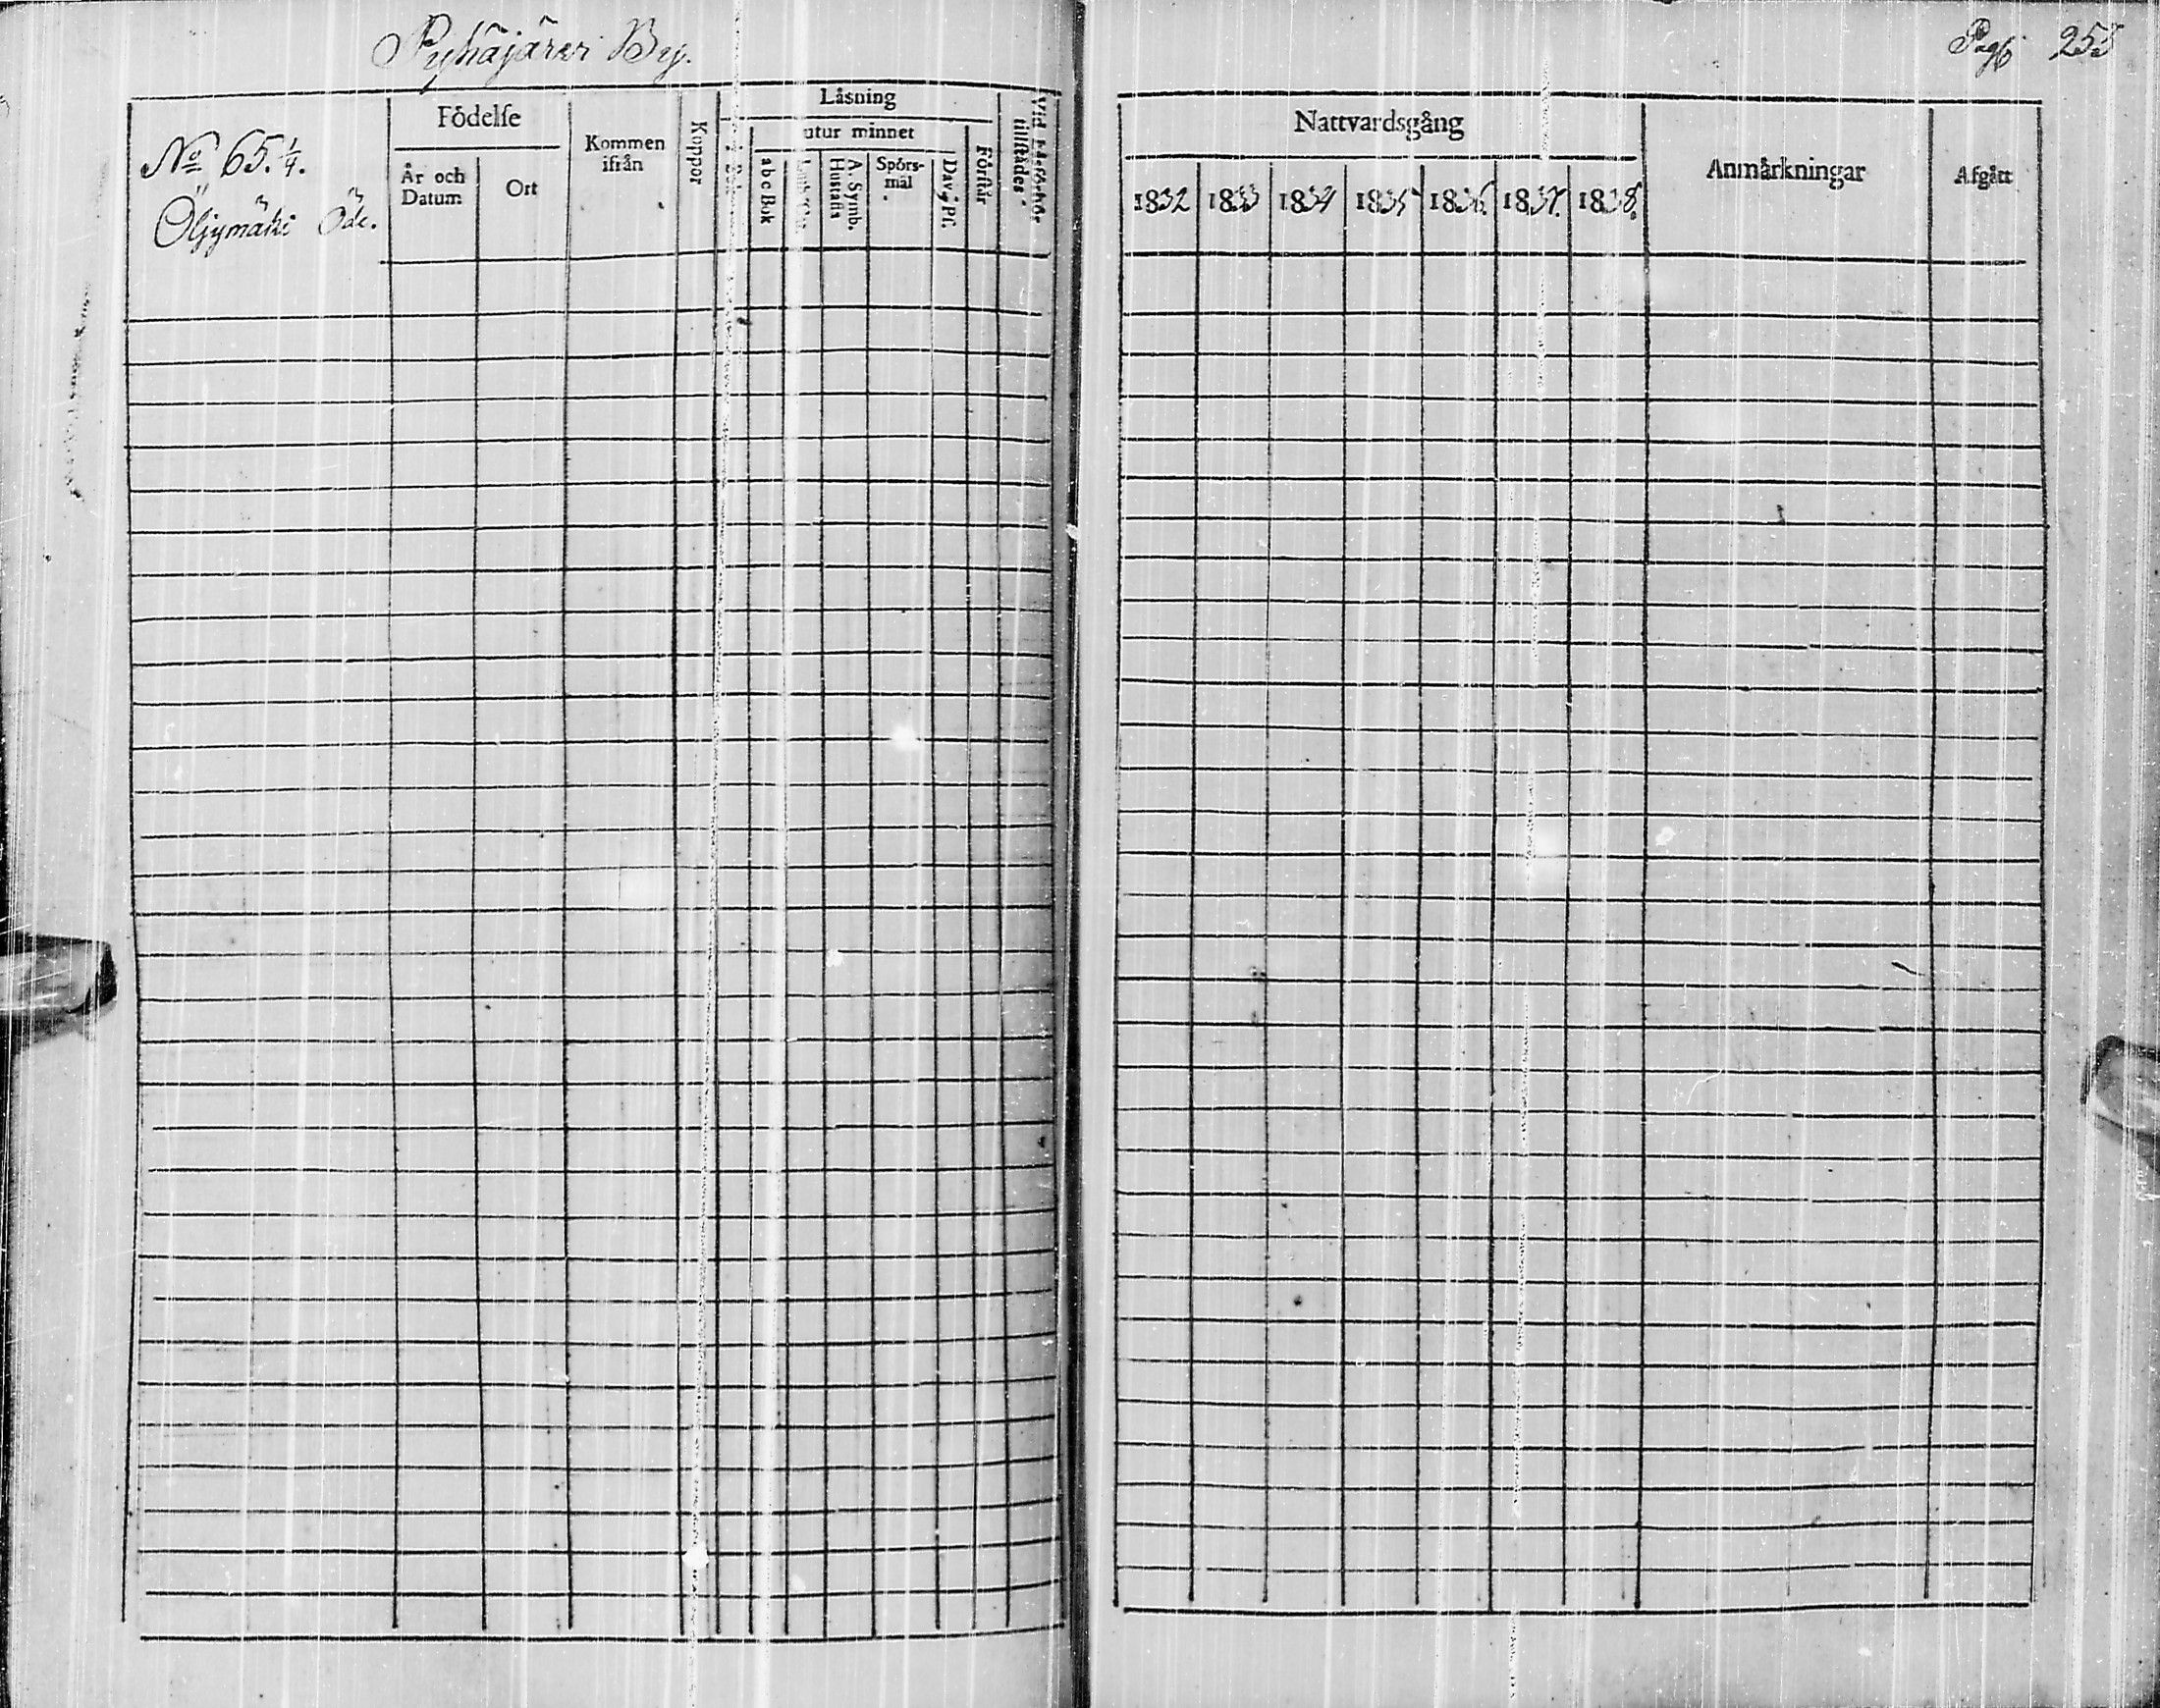 Pyhäjärvi By.
Pag: 255
No 65. 1/4.
Öljymäki Öde.
Födelse
År och Datum
Ort
Kommen ifrån
Koppor
Läsning
utur minnet
abc Bok
A. Symb. Hustafla
Spörsmål
Dav. Ps.
Förstår
tillstädes
Nattvardsgång
1832 1833 1834 1835 1836. 1837. 1838.
Anmärkningar
Afgått